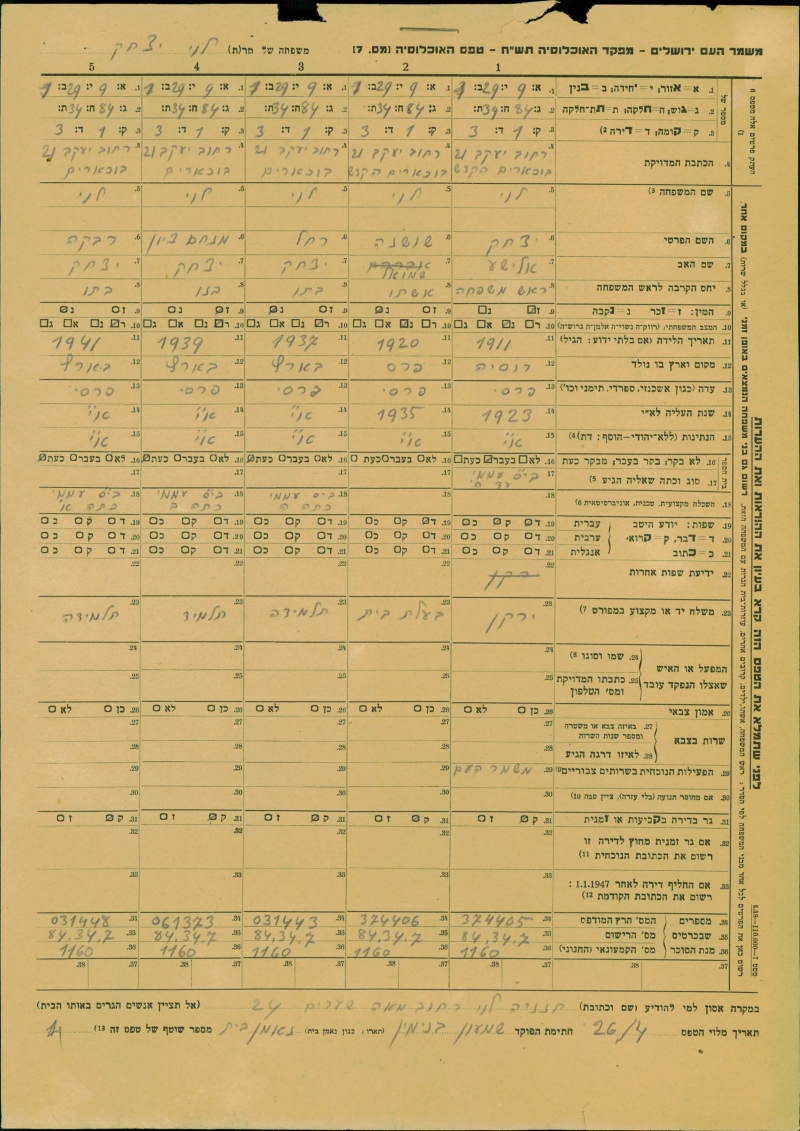 משמר העם ירושלים – מפקד האוכלוסיה תש"ח – טפס האוכלוסיה (מס. 7) משפחה של מר(ת) לוי יצחק
1 2 3 4 5
1. א=אזור; י=יחידה; ב=בנין
2. ג=גוש; ח=חלקה; ת=תת־חלקה
3. ק=קומה; ד=דירה (2 ק: 1 ד: 3 ק: 1 ד: 3 ק: 1 ד: 3 ק: 1 ד: 3 ק: 1 ד: 3
4. הכתבת המדויקת רחוב יעקב 21 רחוב יעקב 21 רחוב יעקב 21 רחוב יעקב 21 רחוב יעקב 21
בוכארים הקדש בוכארים הקדש בוכארים בוכארים בוכארים
5. שם המשפחה (3 לוי לוי לוי לוי לוי
6. השם הפרטי יצחק שושנה רחל מנחם ציון רבקה
7. שם האב אלישע שמואל יצחק יצחק יצחק
8. יחס הקרבה לראש המשפחה ראש משפחה אשתו בתו בנו בתו
9. המין: ז=זכר נ=נקבה
10. המצב המשפחתי: (רווק־ה נשוי־ה אלמן־ה גרוש־ה)
11. תאריך הלידה (אם בלתי ידוע: הגיל) 1911 1920 1937 1939 1941
12. מקום וארץ בו נולד רוסיה פרס בארץ בארץ בארץ
13. עדה (כגון אשכנזי, ספרדי, תימני וכו') פרסי פרסי פרסי פרסי פרסי
14. שנת העליה לא"י 1923 1935 א"י א"י א"י
15. הנתינות (ללא־יהודי–הוסף: דת) (4 א"י א"י א"י א"י א"י
16. לא בקר; בקר בעבר; מבקר כעת
17. סוג וכתה שאליה הגיע (5 ביה"ס עממי
18. השכלה מקצועית, טכנית, אוניברסיטאית (6 בי"ס עממי בי"ס עממי בי"ס עממי
כתה ה כתה ב כתה א
19. שפות: יודע היטב עברית
20. ד=דבר, ק=קרוא, ערבית
21. כ=כתוב אנגלית
22. ידיעת שפות אחרות
23. משלח יד או מקצוע במפורט (7 ירקן בעלת בית תלמידה תלמיד תלמידה
24. שמו וסוגו (8
המפעל או האיש
שאצלו הנפקד עובד
25. כתבתו המדויקת
ומס' הטלפון
26. אמון צבאי כן לא כן לא כן לא כן לא כן לא
שרות בצבא
27. באיזה צבא או משטרה
ומספר שנות השרות
28. לאיזו דרגה הגיע
29. הפעילות הנוכחית בשרותים צבוריים (9 משמר העם
30. אם מחוסר תנועה (בלי עזרה), ציין סבה (10
31. גר בדירה בקביעות או זמנית
32. אם גר זמנית מחוץ לדירה זו
רשום את הכתובת הנוכחית (11
33. אם החליף דירה לאחר 1.1.1947 :
רשום את הכתובת הקודמת (12
34. מספרים המס' הרץ המודפס 374405 374406 031443 061373 031448
35. שבכרטיס מס' הרישום 84,34,7 84,34,7 84,34,7 84,34,7 84,34,7
36. מנת הסוכר מס' הקמעונאי (החנוני) 1160 1160 1160 1160 1160
37. 38. 37. 38. 37. 38. 37. 38. 37. 38.
במקרה אסון למי להודיע (שם וכתובת) חנניה לוי רחוב מאה שערים 24 (אל תציין אנשים הגרים באותו הבית)
תאריך מלוי הטפס 26/4 חתימת הפוקד שמעון בנימין (תארו: כגון נאמן בית) נאמן בית מספר שוטף של טפס זה (13
לפני שתמלא את הטפס הזה קרא בעיון את ההוראות ואת ההערות